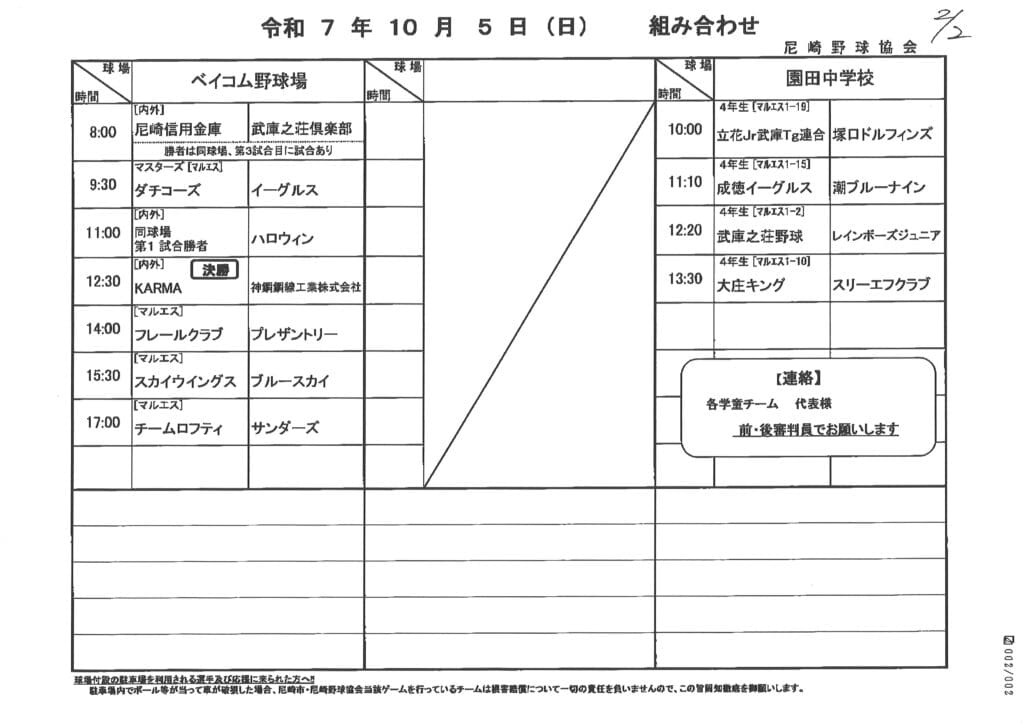 令和 7 年 10 月 5 日（日） 組み合わせ
2/2
尼崎野球協会
球場 ベイコム野球場 球場 球場 園田中学校
時間 時間 時間
8:00 [内外] 尼崎信用金庫 武庫之荘倶楽部
勝者は同球場、第3試合目に試合あり
9:30 マスターズ [マルエス] ダチコーズ イーグルス
11:00 [内外] 同球場 第1試合勝者 ハロウィン
12:30 [内外] 決勝 KARMA 神鋼鋼線工業株式会社
14:00 [マルエス] フレールクラブ プレザントリー
15:30 [マルエス] スカイウイングス ブルースカイ
17:00 [マルエス] チームロフティ サンダーズ
10:00 4年生 [マルエス1-19] 立花Jr武庫Tg連合 塚口ドルフィンズ
11:10 4年生 [マルエス1-15] 成徳イーグルス 潮ブルーナイン
12:20 4年生 [マルエス1-2] 武庫之荘野球 レインボーズジュニア
13:30 4年生 [マルエス1-10] 大庄キング スリーエフクラブ
【連絡】
各学童チーム 代表様
前・後審判員でお願いします
球場付設の駐車場を利用される選手及び応援に来られた方へ!!
駐車場内でボール等が当って車が破損した場合、尼崎市・尼崎野球協会当該ゲームを行っているチームは損害賠償について一切の責任を負いませんので、この旨周知徹底を御願いします。
002/002